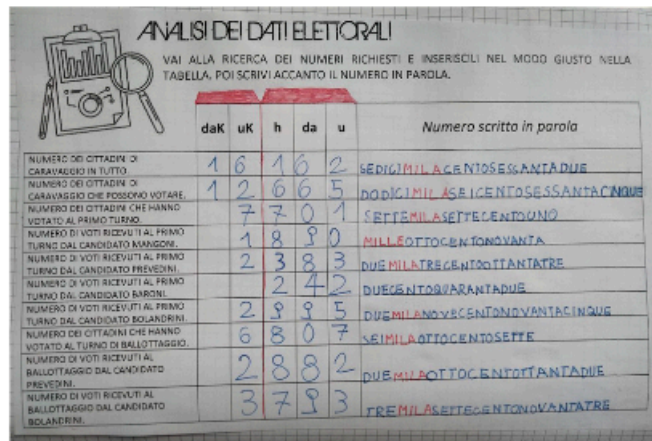 ANALISI DEI DATI ELETTORALI
VAI ALLA RICERCA DEI NUMERI RICHIESTI E INSERISCILI NEL MODO GIUSTO NELLA
TABELLA, POI SCRIVI ACCANTO IL NUMERO IN PAROLA.
daK uK h da u Numero scritto in parola
NUMERO DEI CITTADINI DI
CARAVAGGIO IN TUTTO. 1 6 1 6 2 SEDICIMILACENTOSESSANTADUE
NUMERO DEI CITTADINI DI
CARAVAGGIO CHE POSSONO VOTARE. 1 2 6 6 5 DODICIMILASEICENTOSESSANTACINQUE
NUMERO DEI CITTADINI CHE HANNO
VOTATO AL PRIMO TURNO. 7 7 0 1 SETTEMILASETTECENTOUNO
NUMERO DI VOTI RICEVUTI AL PRIMO
TURNO DAL CANDIDATO MANGONI. 1 8 9 0 MILLEOTTOCENTONOVANTA
NUMERO DI VOTI RICEVUTI AL PRIMO
TURNO DAL CANDIDATO PREVEDINI. 2 3 8 3 DUEMILATRECENTOOTTANTATRE
NUMERO DI VOTI RICEVUTI AL PRIMO
TURNO DAL CANDIDATO BARONI. 2 4 2 DUECENTOQUARANTADUE
NUMERO DI VOTI RICEVUTI AL PRIMO
TURNO DAL CANDIDATO BOLANDRINI. 2 9 9 5 DUEMILANOVECENTONOVANTACINQUE
NUMERO DEI CITTADINI CHE HANNO
VOTATO AL TURNO DI BALLOTTAGGIO. 6 8 0 7 SEIMILAOTTOCENTOSETTE
NUMERO DI VOTI RICEVUTI AL
BALLOTTAGGIO DAL CANDIDATO
PREVEDINI. 2 8 8 2 DUEMILAOTTOCENTOTTANTADUE
NUMERO DI VOTI RICEVUTI AL
BALLOTTAGGIO DAL CANDIDATO
BOLANDRINI. 3 7 9 3 TREMILASETTECENTONOVANTATRE